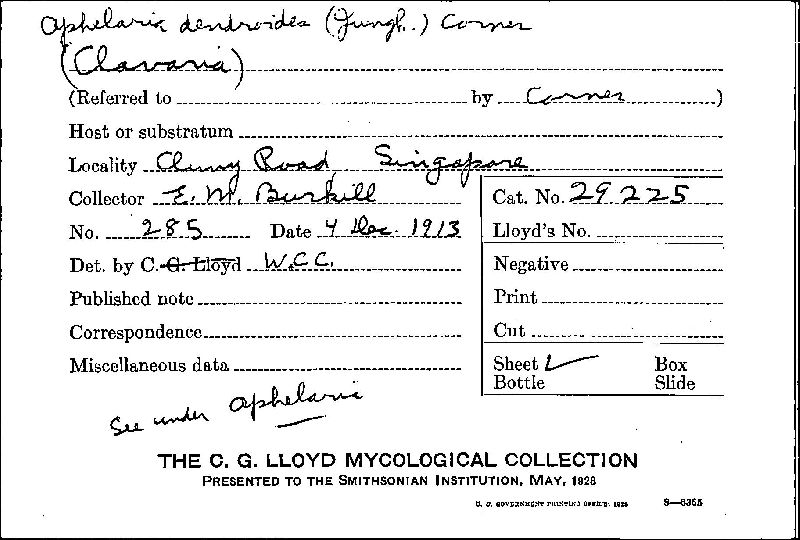 Aphelaria dendroides (Jungh.) Corner
(Clavaria)
(Referred to by Corner)
Host or substratum
Locality Cluny Road, Singapore
Collector E. M. Burkill
Cat. No. 29225
No. 285 Date 4 Dec. 1913
Lloyd's No.
Det. by C. G. Lloyd W.C.C.
Negative
Published note
Print
Correspondence
Cut
Miscellaneous data
Sheet ✓ Box
Bottle Slide
See under Aphelaria
THE C. G. LLOYD MYCOLOGICAL COLLECTION
PRESENTED TO THE SMITHSONIAN INSTITUTION, MAY, 1928
U. S. GOVERNMENT PRINTING OFFICE: 1928 8—6355